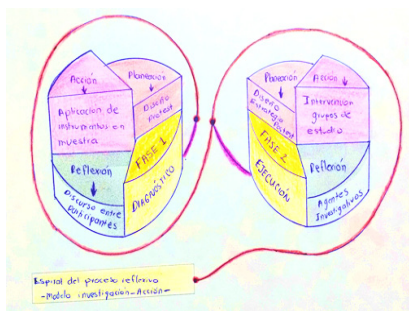 Acción
Aplicación de
instrumentos en
muestra
Planeación
Diseño
Pretest
Reflexión
Discurso entre
Participantes
FASE 1
DIAGNÓSTICO
Planeación
Diseño
Estrategia
Postest
Acción
Intervención
grupos de
estudio
FASE 2
EJECUCIÓN
Reflexión
Agentes
Investigativos
Espiral del proceso reflexivo
-Modelo investigación-Acción-